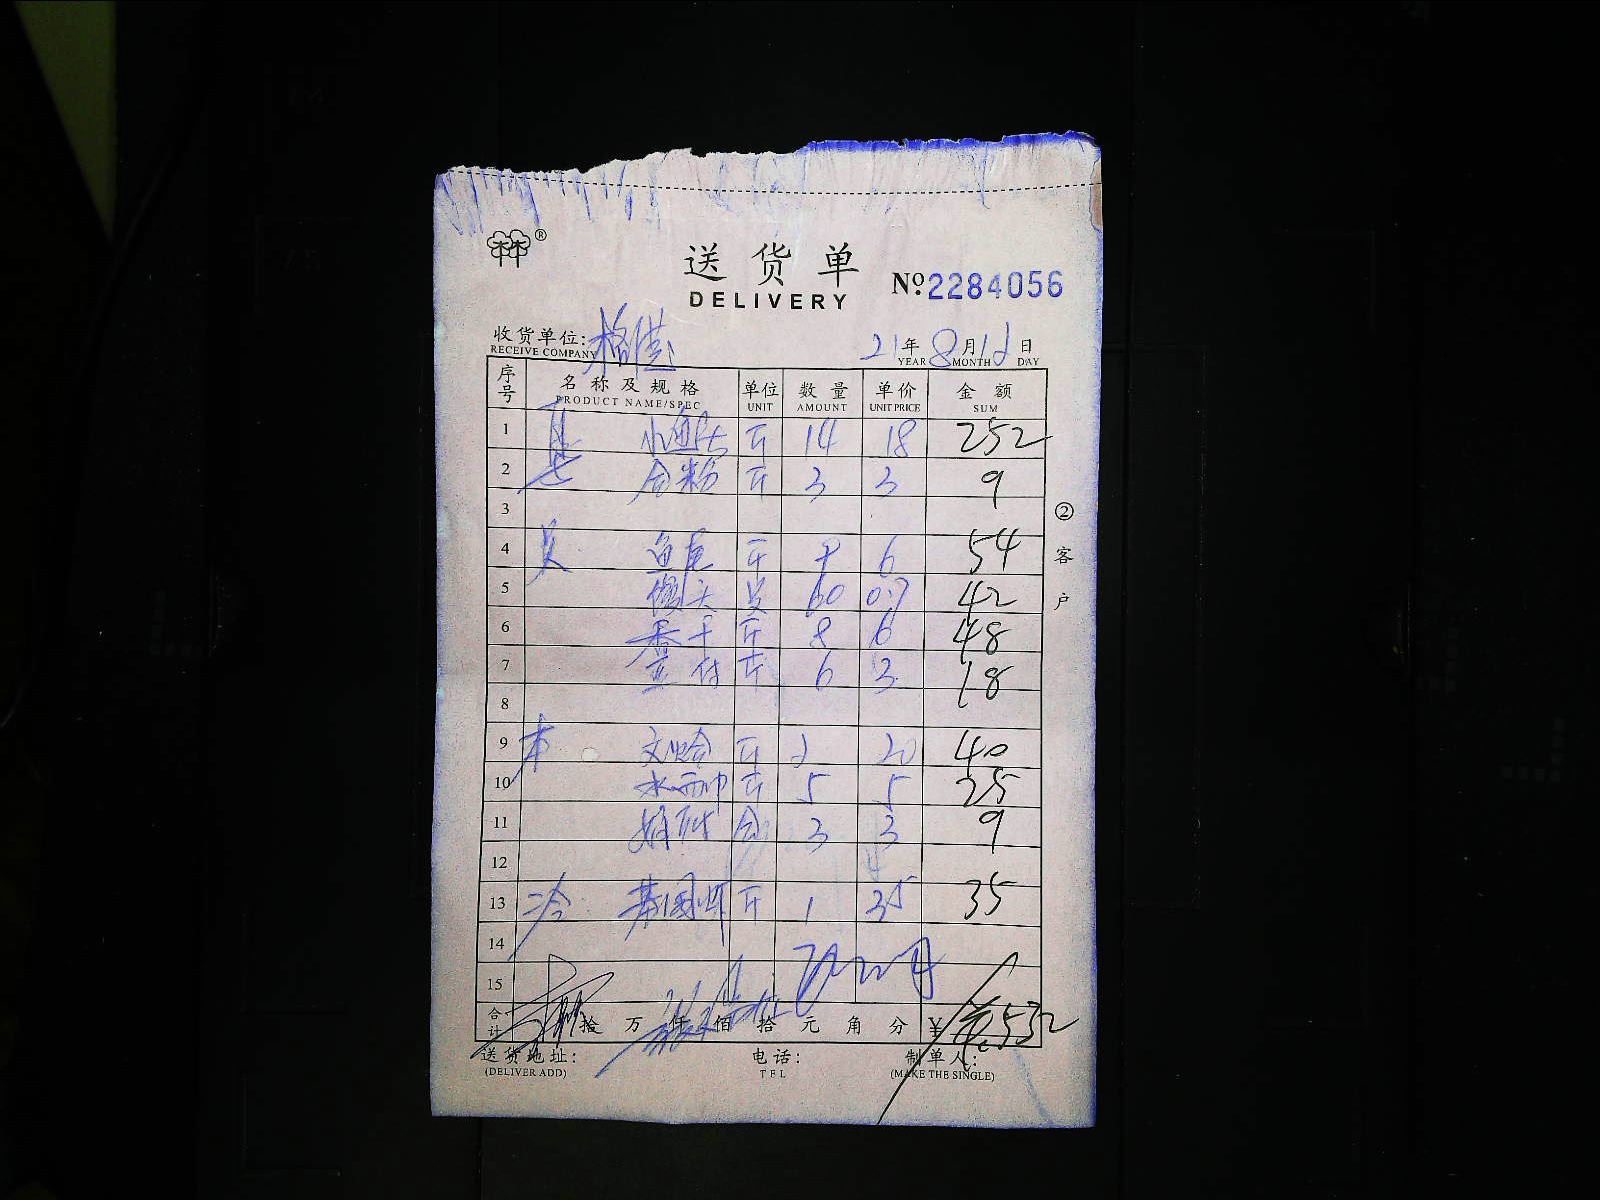 ®
送货单
DELIVERY
Nº 2284056
收货单位:
RECEIVE COMPANY
21年8月12日
YEAR MONTH DAY
序号 名称及规格 单位 数量 单价 金额
PRODUCT NAME/SPEC UNIT AMOUNT UNIT PRICE SUM
1 小鱼头 斤 14 18 252
2 合粉 斤 3 3 9
3
4 鱼尾 斤 9 6 54
5 馒头 只 60 0.7 42
6 香干 斤 8 6 48
7 豆付 斤 6 3 18
8
9 文蛤 斤 2 20 40
10 水面巾 斤 5 5 25
11 合 3 3 9
12
13 冷 斤 1 35 35
14
15
合计 拾万仟佰拾元角分 ¥ 532
②客户
送货地址: 电话: 制单人:
(DELIVER ADD) TEL (MAKE THE SINGLE)